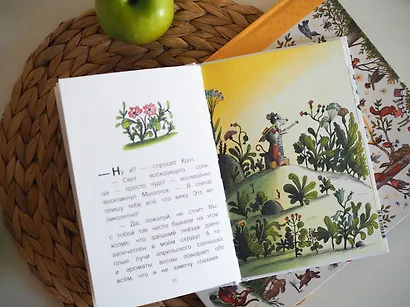 — Ну и? — спросил Крот.
— Свет восходящего солн-
ца — просто чудо! — восхищённо
воскликнул Мышонок. — Я сейчас
опишу тебе всё, что вижу. Это ве-
ликолепно!
— Да, пожалуй, не стоит. Мы
с тобой так часто бываем на этом
холме, что здешний пейзаж давно
запечатлён в моём сердце. А тё-
плые лучи апрельского солнышка
и ароматы весны поведают обо
всём, что я не замечу глазами.